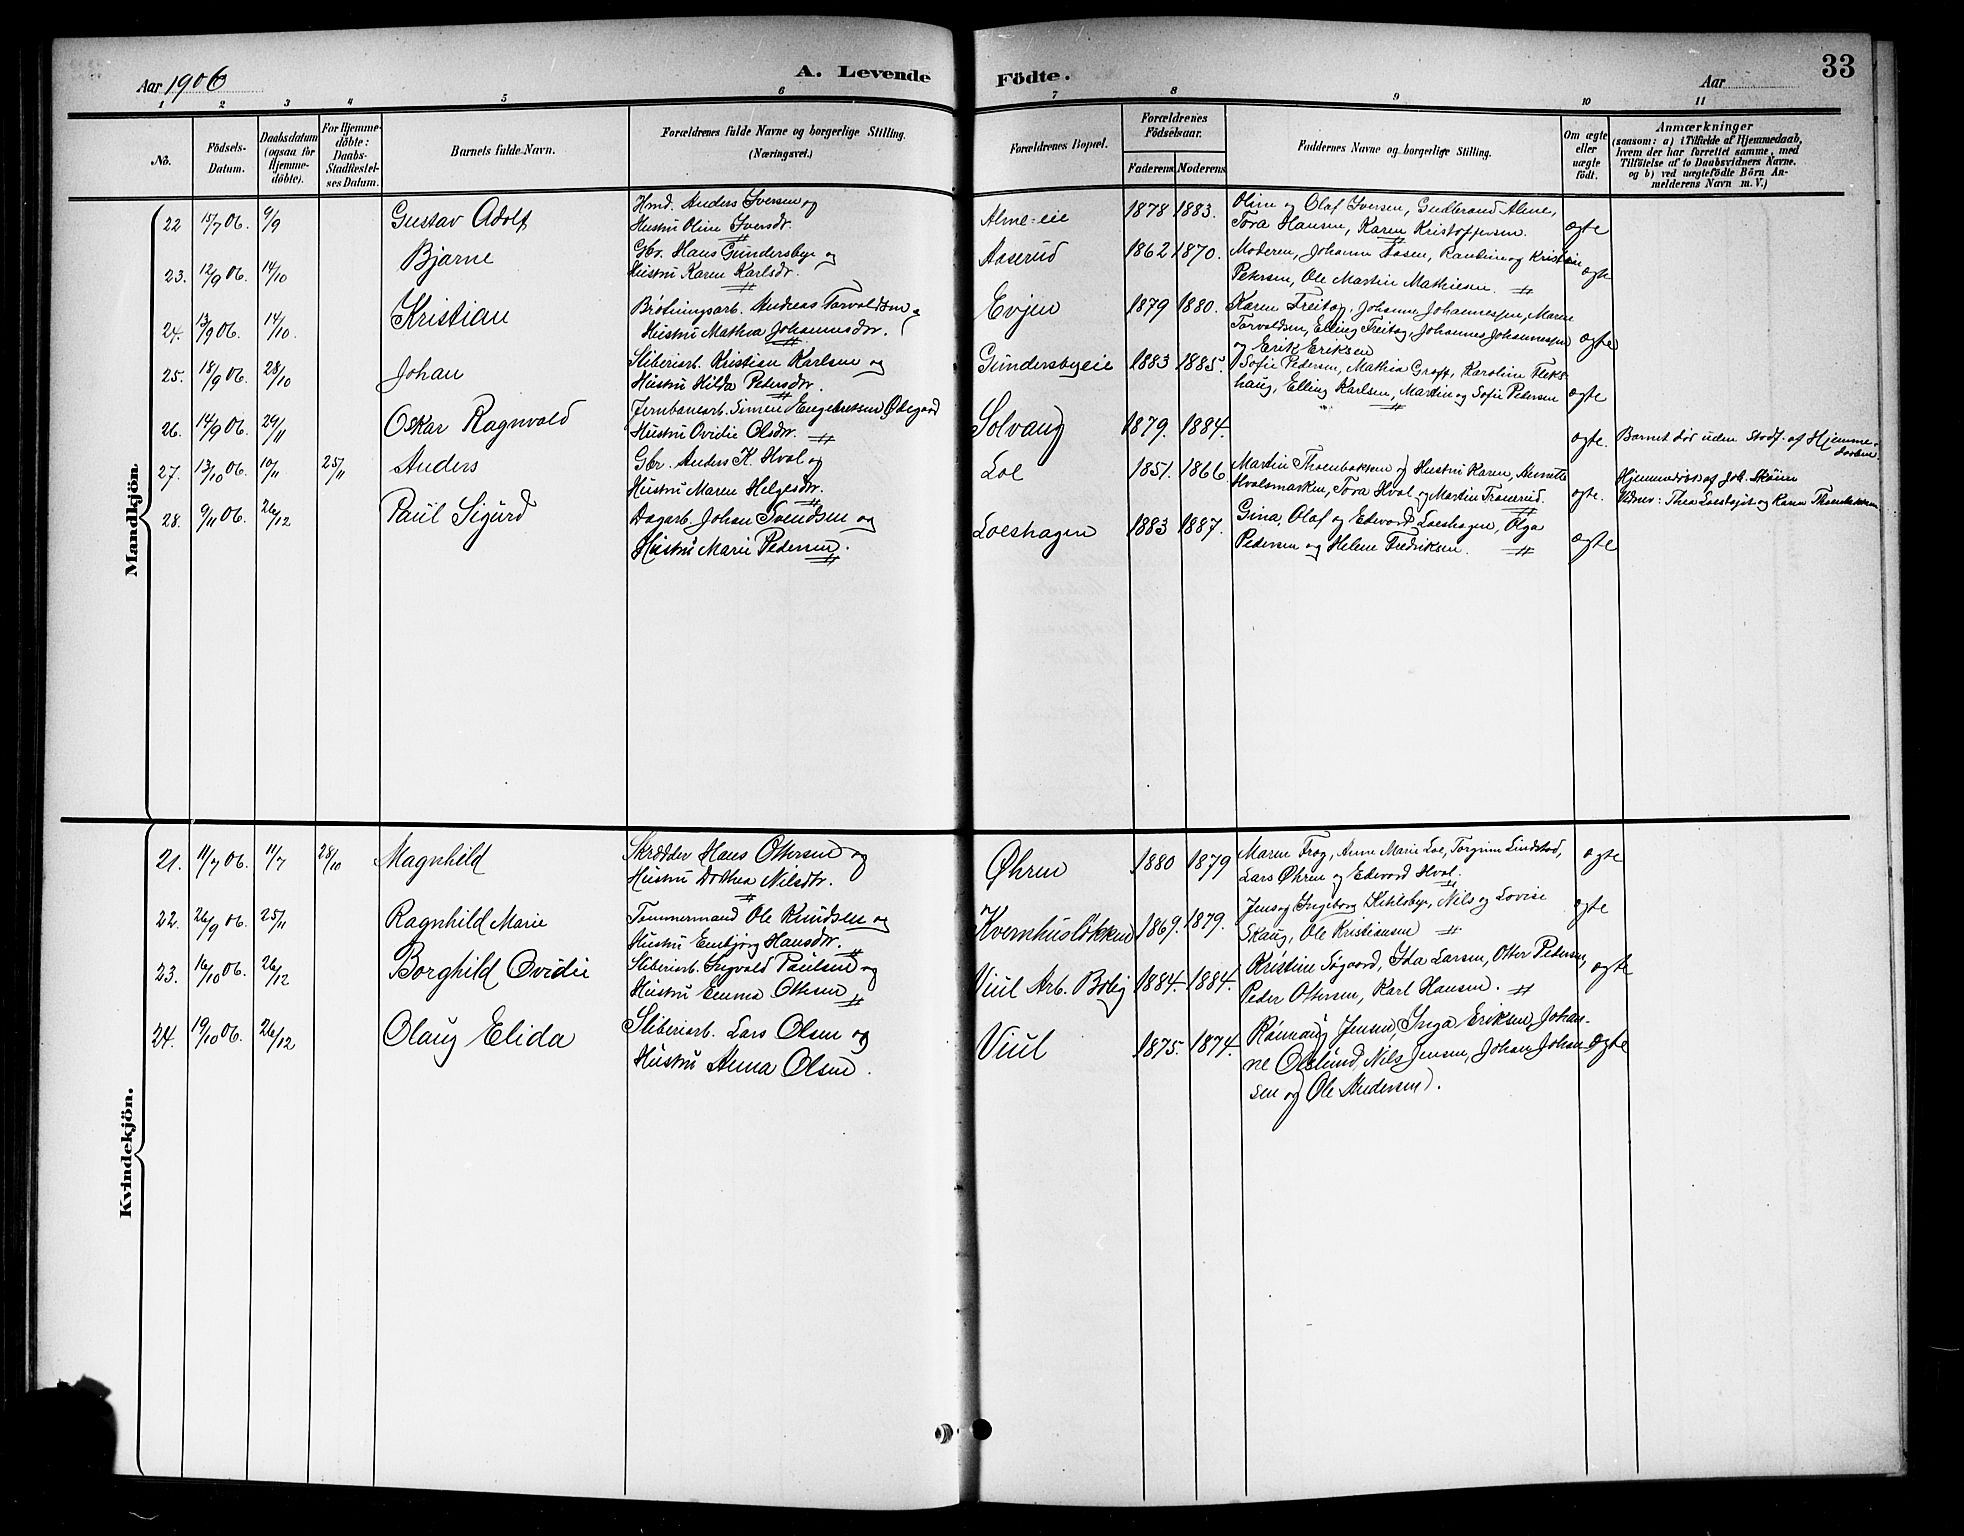 Aar 1906
A. Levende Födte.
Aar
33
1 2 3 4 5 6 7 8 9 10 11
No.
Födsels-Datum.
Daabsdatum (ogsaa for Hjemme-döbte).
For Hjemme-döbte: Daabs-Stadfæstel-ses Datum.
Barnets fulde Navn.
Forældrenes fulde Navne og borgerlige Stilling.
(Næringsvei.)
Forældrenes Bopæl.
Forældrenes Födselsaar.
Faderens Moderens
Faddernes Navne og borgerlige Stilling.
Om ægte eller uægte födt.
Anmærkninger
(saasom: a) i Tilfælde af Hjemmedaab,
hvem der har forrettet samme, med
Tilföielse af to Daabsvidners Navne.
og b) ved uægtefödte Börn An-
melderens Navn m. V.)
Mandkjön.
22 15/7 06. 9/9 Gustav Adolf Hmd. Anders Iversen og Alme-eie 1878 1883. Oline og Olaf Iversen, Gudbrand Alme, ægte
Hustru Oline Iversdr. Tora Hansen, Karen Kristoffersen.
23. 12/9 06. 14/10 Bjarne Gbr. Hans Gundersbye og Aaserud 1862 1870. Moderen, Johanne Fosen, Randine og Kristian ægte
Hustru Karen Karlsdr. Petersen, Ole Martin Mathiesen.
24. 13/9 06. 14/10. Kristian Brötningsarb. Andreas Torvaldsen og Evjen 1879 1880. Karen Freitag, Johanne Johannessen, Maren
Hustru Mathea Johannesdr. Torvaldsen, Elling Freitag, Johannes Johannessen ægte
og Erik Eriksen
25. 18/9 06. 28/10 Johan Sliberiarb. Kristian Karlsen og Gundersbyeie 1883 1885. Sofie Pedersen, Mathea Graff, Karoline Fleks-
Hustru Hilda Petersdr. haug, Elling Karlsen, Martin og Sofie Pedersen ægte
26. 14/9 06. 29/11 Oskar Ragnvald Jernbanearb. Simen Engebretsen Ødegaard Solvang 1879. 1884. ægte. Barnet dör uden Stadf. af Hjemme-
Hustru Ovidie Olsdr. daaben
27. 13/10 06. 10/11 25/11 Anders Gbr. Anders K. Hval og Loe 1851. 1866. Martin Thoenbakken og Hustru Karen, Annette ægte. Hjemmedöbt af Joh. Sköien
Hustru Maren Helgesdr. Hvalsmarken, Tora Hval og Martin Tranerud. Vidner: Thea Loesbejst og Karen Thoenbakken
28. 9/11 06. 26/12 Paul Sigurd Dagarb. Johan Svendsen og Loeshagen 1883 1887. Gina, Olaf og Edvard Loeshagen, Olga ægte
Hustru Marie Pedersen. Pedersen og Helene Fredriksen.
Kvindekjön.
21. 11/7 06. 11/7 28/10 Magnhild Skrædder Hans Ottersen og Øhren 1880 1879 Maren Frog, Anne Marie Loe, Torgrim Lindstad, ægte
Hustru Dorthea Nilsdtr. Lars Øhren og Edvard Hval.
22. 26/9 06. 25/11 Ragnhild Marie Tømmermand Ole Knudsen og Kvernhusløkken 1869. 1879. Jens og Ingeborg Kihlsbye, Nils og Lovise ægte
Hustru Embjørg Hansdr. Skaug, Ole Kristiansen
23. 16/10 06. 26/12 Borghild Ovidie Sliberiarb. Sigvald Paulsen og Viul Arb. Bolig 1884. 1884. Kristine Søgaard, Ida Larsen, Otter Pedersen, ægte
Hustru Emma Ottesen Peder Ottersen, Karl Hansen.
24. 19/10 06. 26/12 Olaug Elida Sliberiarb. Lars Olsen og Viul 1875. 1874. Rønnaug Jensen, Inga Eriksen, Johan- ægte
Hustru Anna Olsen. ne Oslund, Nils Jensen, Johan Johan-
sen og Ole Andersen.